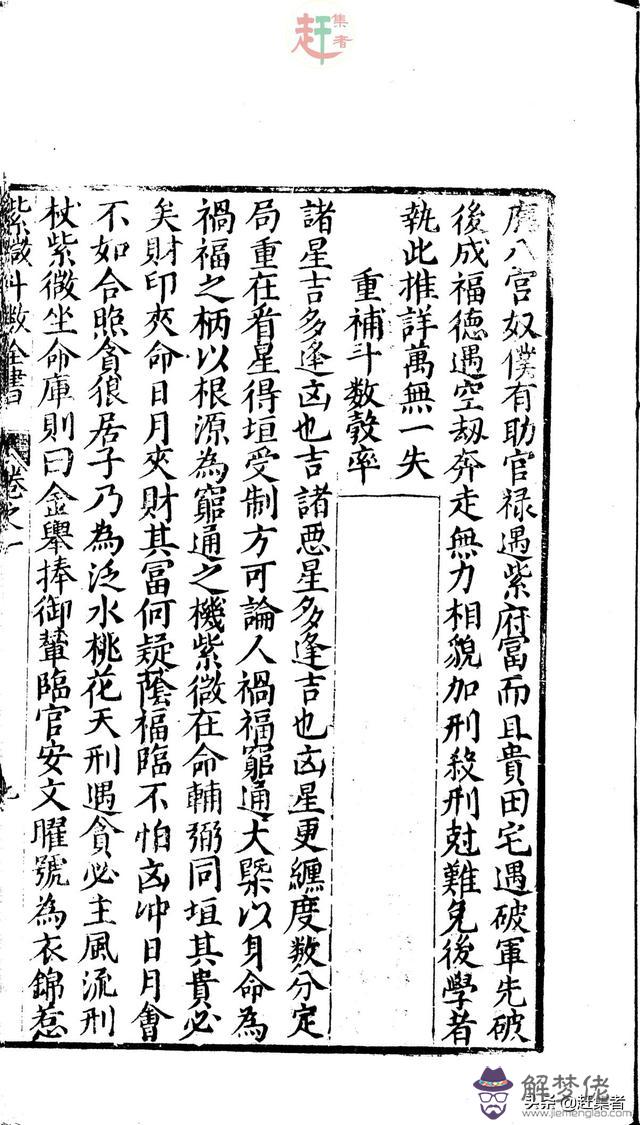 趕集者
八宮奴僕有助官禄遇紫府富而且貴田宅遇破軍先破
後成福德遇空刼奔走無力相貌加刑殺刑尅難免後學者
執此推詳萬無一失
重補斗数彀率
諸星吉多逢凶也吉諸恶星多逢吉也凶星更纏度数分定
局重在看星得垣受制方可論人禍福窮通大槩以身命為
禍福之柄以根源為窮通之機紫微在命輔弼同垣其貴必
矣財印夾命日月夾財其冨何疑蔭福臨不怕凶冲日月會
不如合照貪狼居子乃為泛水桃花天刑遇貪必主風流刑
杖紫微坐命庫則曰金輿捧御輦臨官安文曜號為衣錦惹
紫微斗数全書 卷之一 七
解梦佬
头条 @赶集者
www.jiemenglao.com